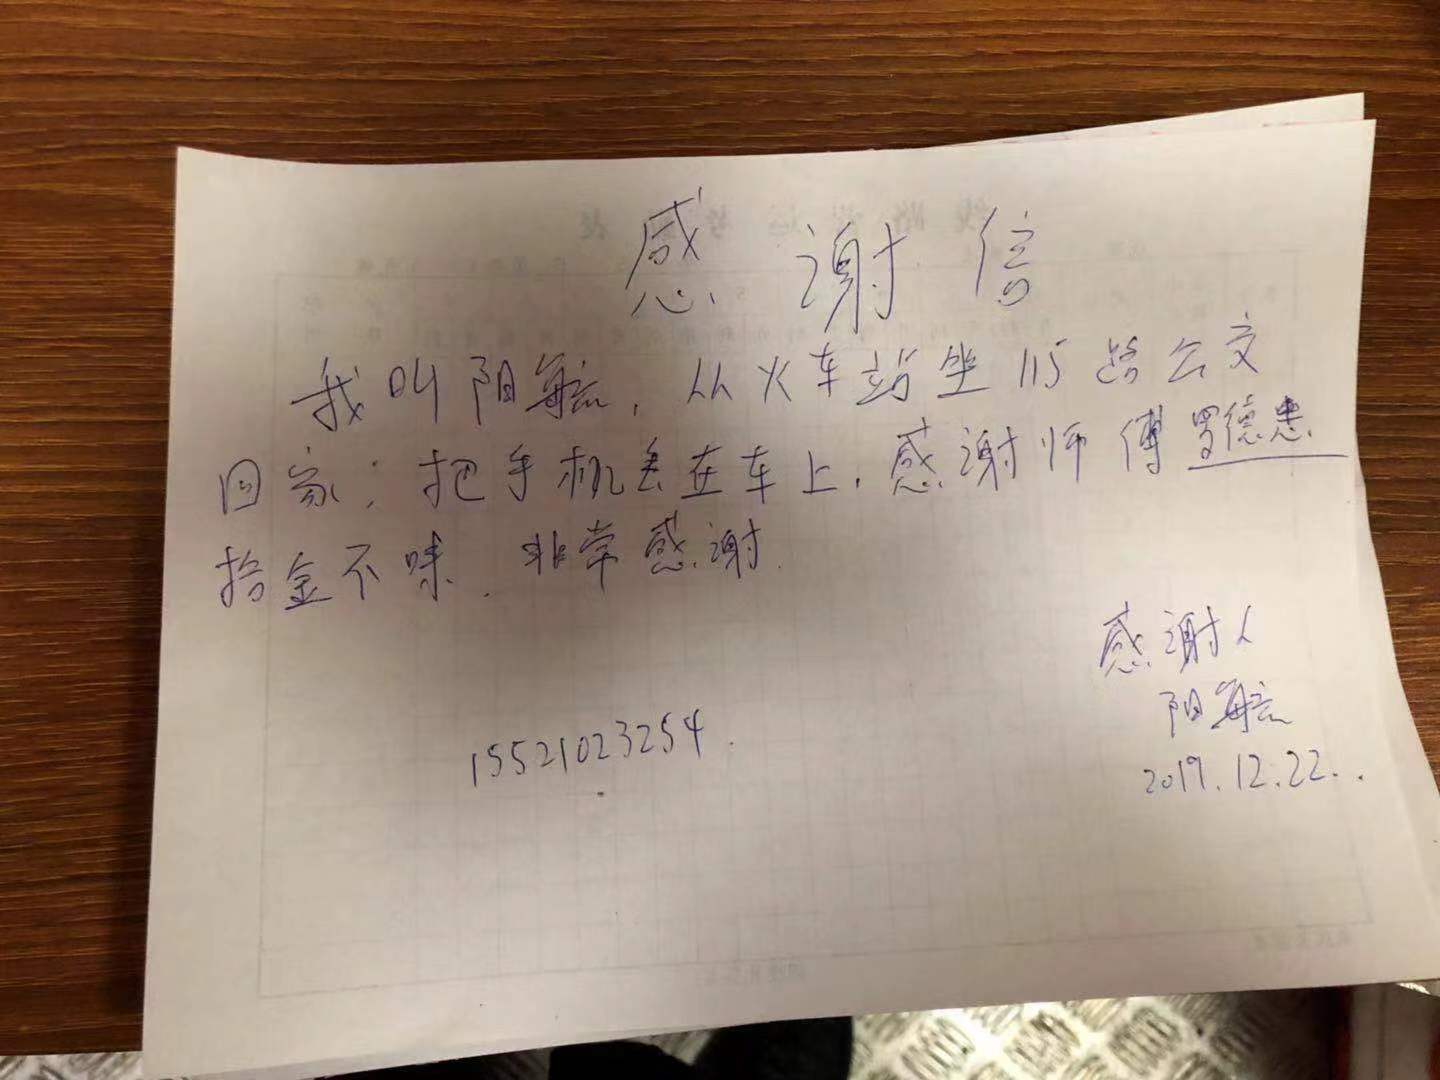 感谢信
我叫阳毓，从火车站坐115路公交
回家，把手机丢在车上，感谢师傅罗德忠
拾金不昧．非常感谢．
感谢人
阳毓
15521023254．
2019.12.22..